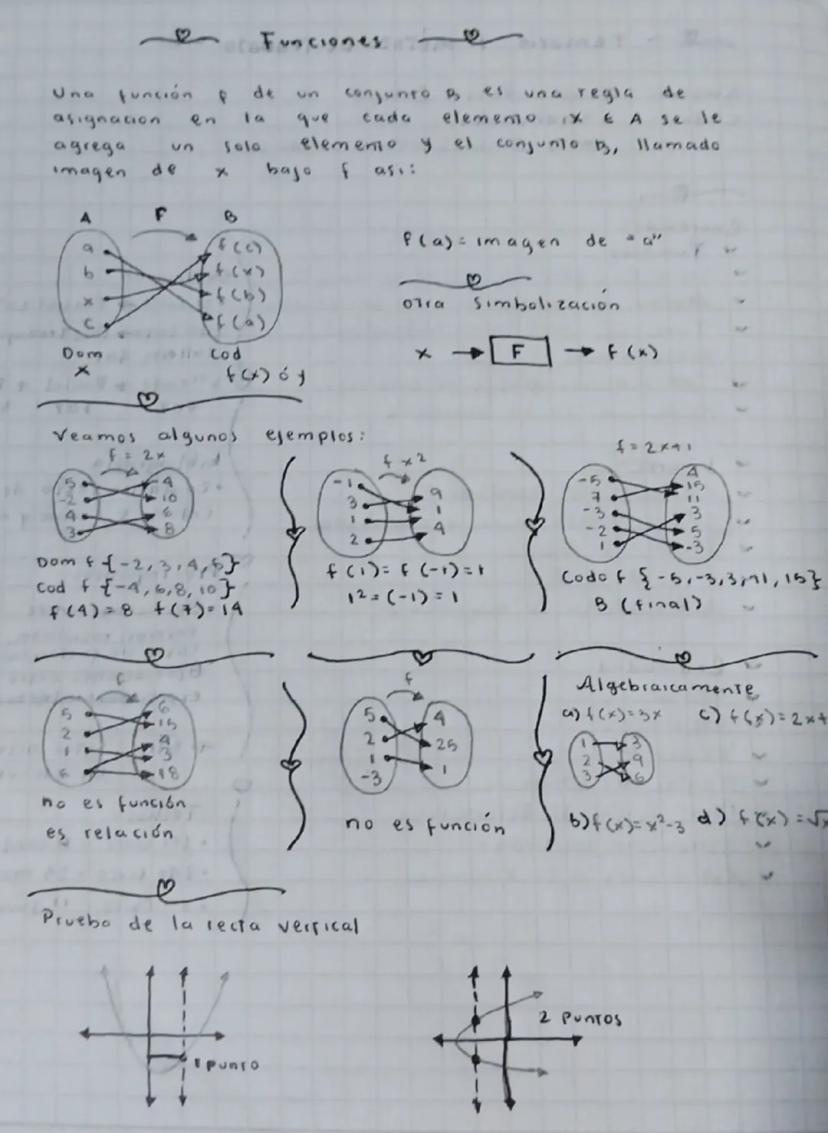 Funciones
Una función f de un conjunto B es una regla de
asignacion en la que cada elemento x ∈ A se le
agrega un solo elemento y el conjunto B, llamado
imagen de x bajo f asi:
A F B
a f(c)
b f(x)
x f(b)
c f(a)
Dom Cod
x f(x) ó y
f(a) = imagen de "a"
otra simbolización
x → F → f(x)
Veamos algunos ejemplos:
f = 2x
5 -4
-2 10
4 6
3 8
Dom f {-2, 3, 4, 5}
Cod f {-4, 6, 8, 10}
f(4) = 8 f(7) = 14
f x²
-1 9
3 1
1 4
2
f(1) = f(-1) = 1
1² = (-1) = 1
f = 2x+1
-5 4
7 15
-3 11
-2 3
1 5
-3
Codo f {-5, -3, 3, 11, 15}
B (final)
f
5 6
2 15
1 4
6 3
18
no es función
es relación
f
5 4
2 25
1 1
-3
no es función
Algebraicamente
a) f(x) = 3x c) f(x) = 2x+
1 3
2 9
3 6
b) f(x) = x²-3 d) f(x) = √x
Prueba de la recta vertical
1 punto
2 puntos